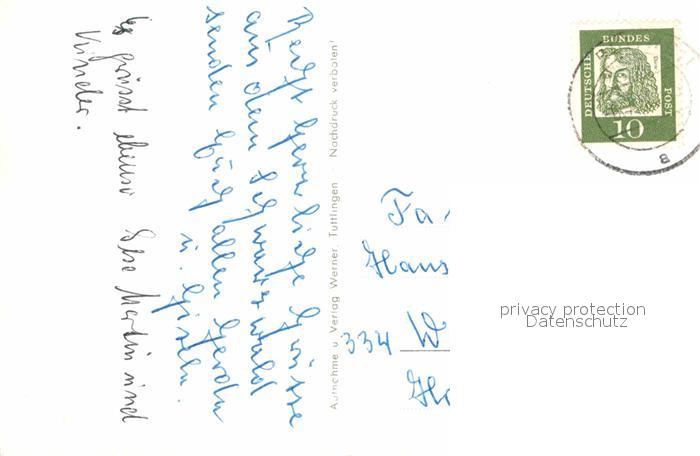 Recht herzliche Grüsse
aus dem Schwarzwald
senden Euch allen Gerda
u. Gisela.
Es grüsst ebenso Else Martin und
Kinder.
Aufnahme u. Verlag Werner, Tuttlingen · Nachdruck verboten!
DEUTSCHE BUNDES POST
10
a
Fa.
Hans
334 W
privacy protection
Datenschutz